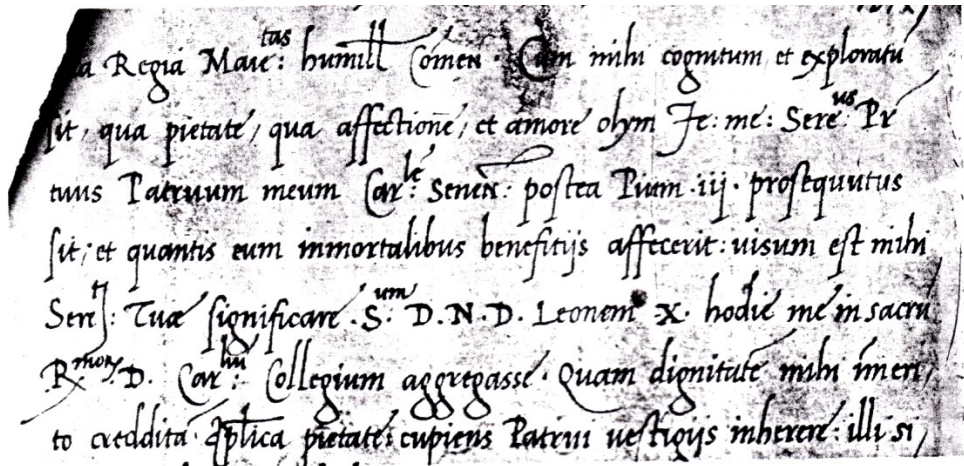 a Regia Maie:tas humill Comen. Cum mihi cognitum, et exploratū
sit, qua pietate, qua affectione, et amore olym Fe: me: Sere:us Pr̄
tuus Patruum meum Car:le Senen̄: postea Pium .iij. prosequutus
sit; et quantis eum immortalibus benefitijs affecerit: uisum est mihi
Sen:ti Tuæ significare .S.um D.N.D. Leonem .X. hodie me in sacrū
R.mor D. Car:liū Collegium aggregasse. Quam dignitate mihi īmeri,
to creddita pietate: cupiens Patrui uestigijs inherere: illi si,